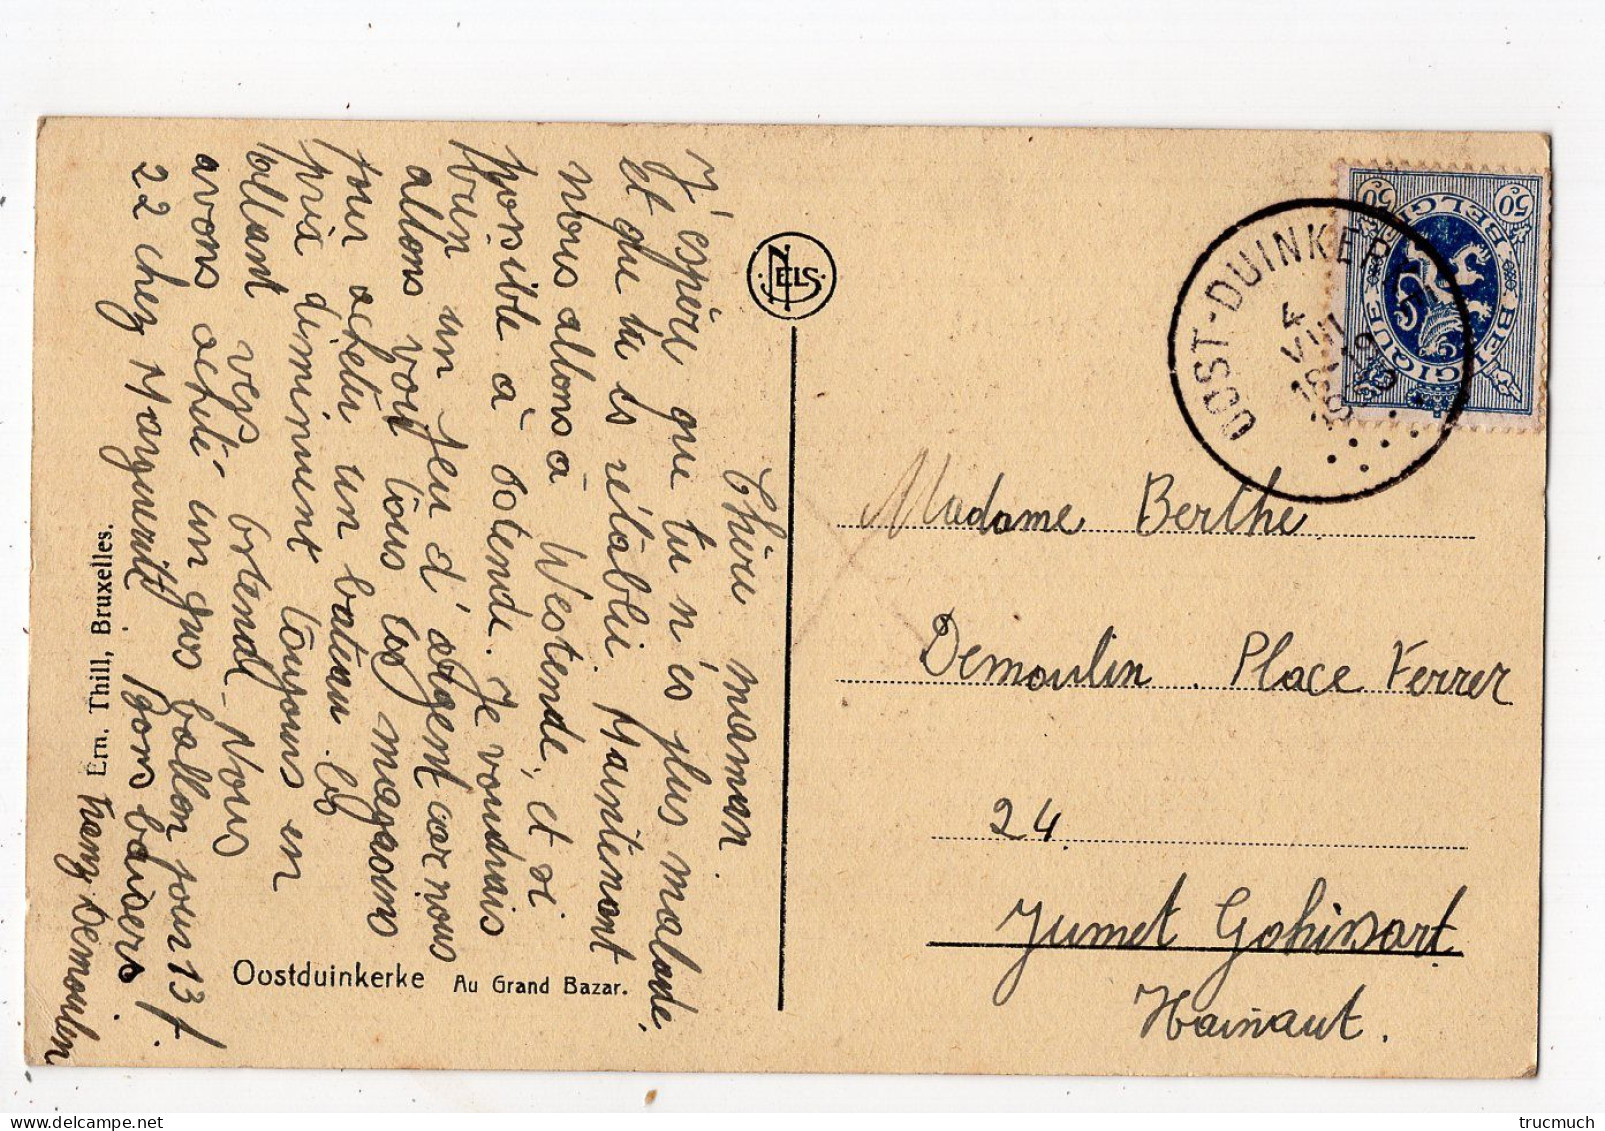 Chère maman.
J'espère que tu n'es plus malade.
et que tu es rétablie. Maintenant
nous allons à Westende, et si
possible à Ostende. Je voudrais
bien un peu d'argent car nous
allons voir tous les magasins
pour acheter un bateau. les
prix diminuent toujours en
allant vers Ostend. Nous
avons acheté un gros ballon pour 13 f.
22 chez Marguerit. Bons baisers
Demoulin
Ern. Thill, Bruxelles.
Oostduinkerke Au Grand Bazar.
NELS
BELGIQUE BELGIE
50 50
OOST-DUINKERKE
4
VIII
18-19
1930
Madame Berthe
Demoulin. Place Ferrer
24
Jumet Gohissart
Hainaut.
trucmuch